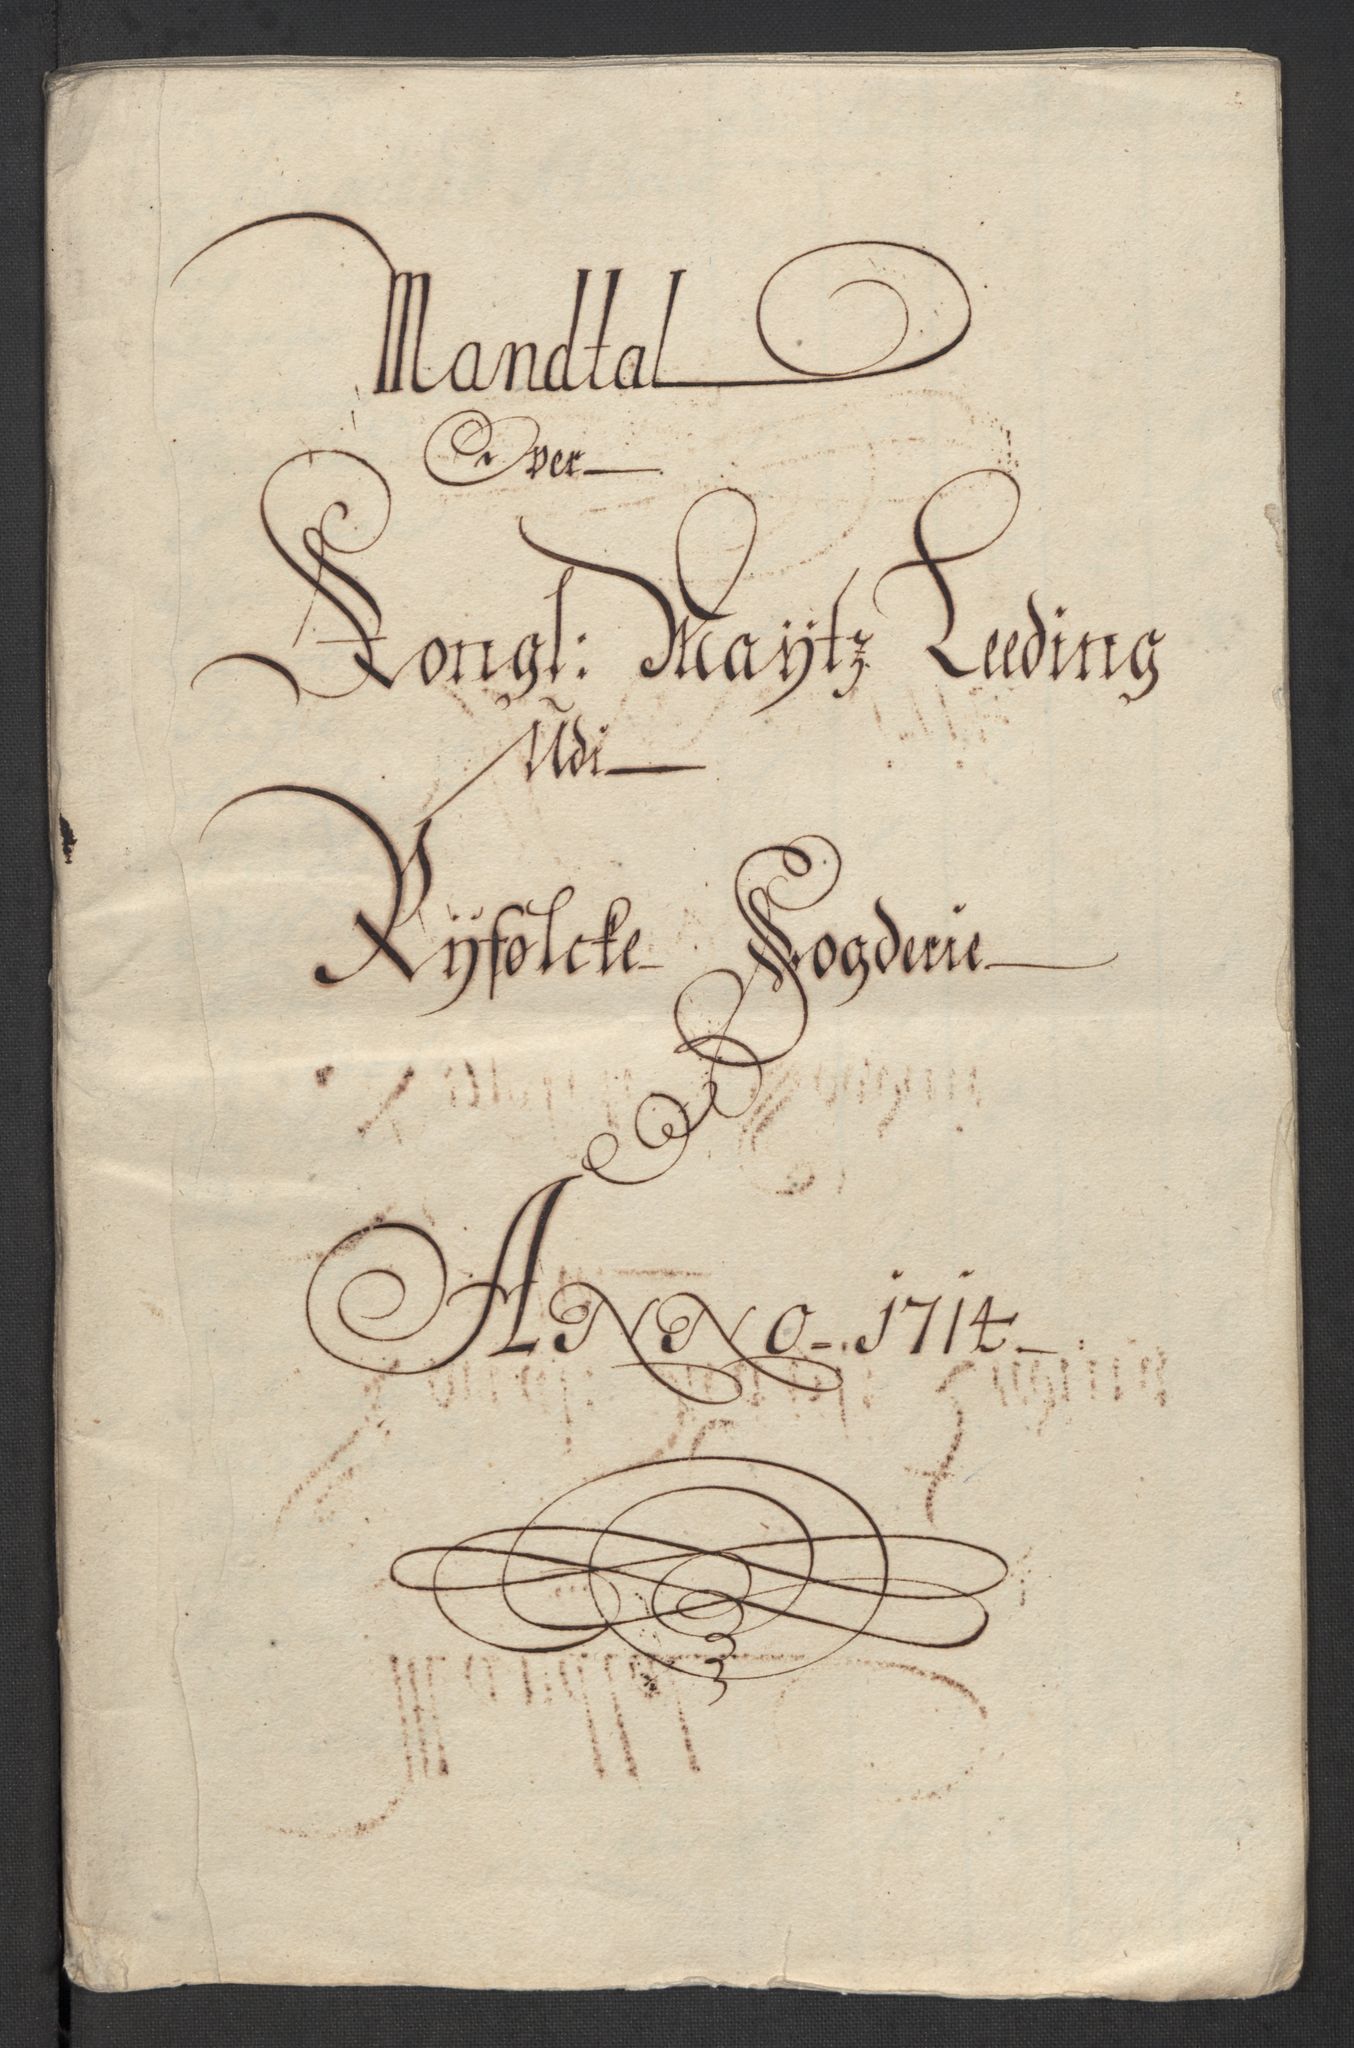 Mandtal
Over
Kongl: Mayᵗz Leeding
Udi
Ryfølcke Fogderie
Anno 1714